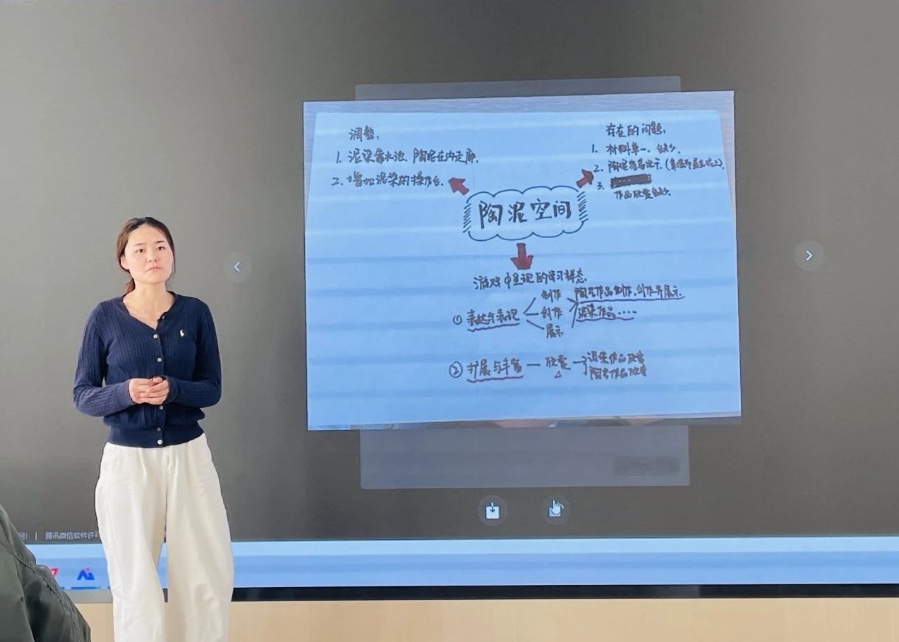 调整:
1. 泥染靠水池、陶泥在内走廊.
2. 增加泥染的操作台.
存在的问题:
1. 材料单一、缺少.
2. 陶泥
3.
作品欣赏缺少.
陶泥空间
游戏中呈现的学习样态
① 表达与表现
创作
创作
展示
陶艺作品制作、创作并展示
泥染作品....
② 扩展与丰富 — 欣赏
泥染作品欣赏
陶艺作品欣赏
腾讯微信软件许可